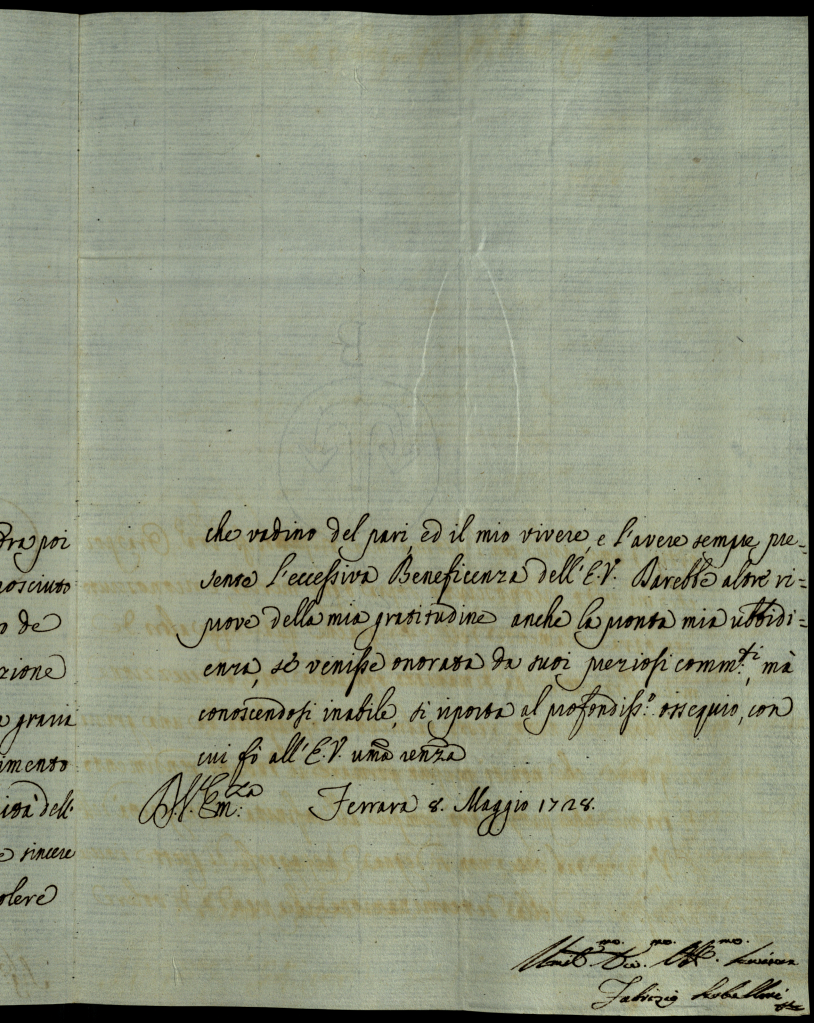 dra poi
nosciuto
o de
zione
e gravia
imento
ità dell'
e sincere
olere
che vadino del pari, ed il mio vivere, e l'avere sempre pre=
sente l'eccessiva Beneficenza dell'E.V. Darebbe altre ri=
prove della mia gratitudine anche la pronta mia ubbidi=
enza, se venisse onorata da suoi preziosi comm.ti, mà
conoscendosi inabile, si riporta al profondiss.o ossequio, con
cui fò all'E.V. uma renza
Ferrara 8. Maggio 1728.
Umil.mo Div.mo Obb.mo
Fabrizio